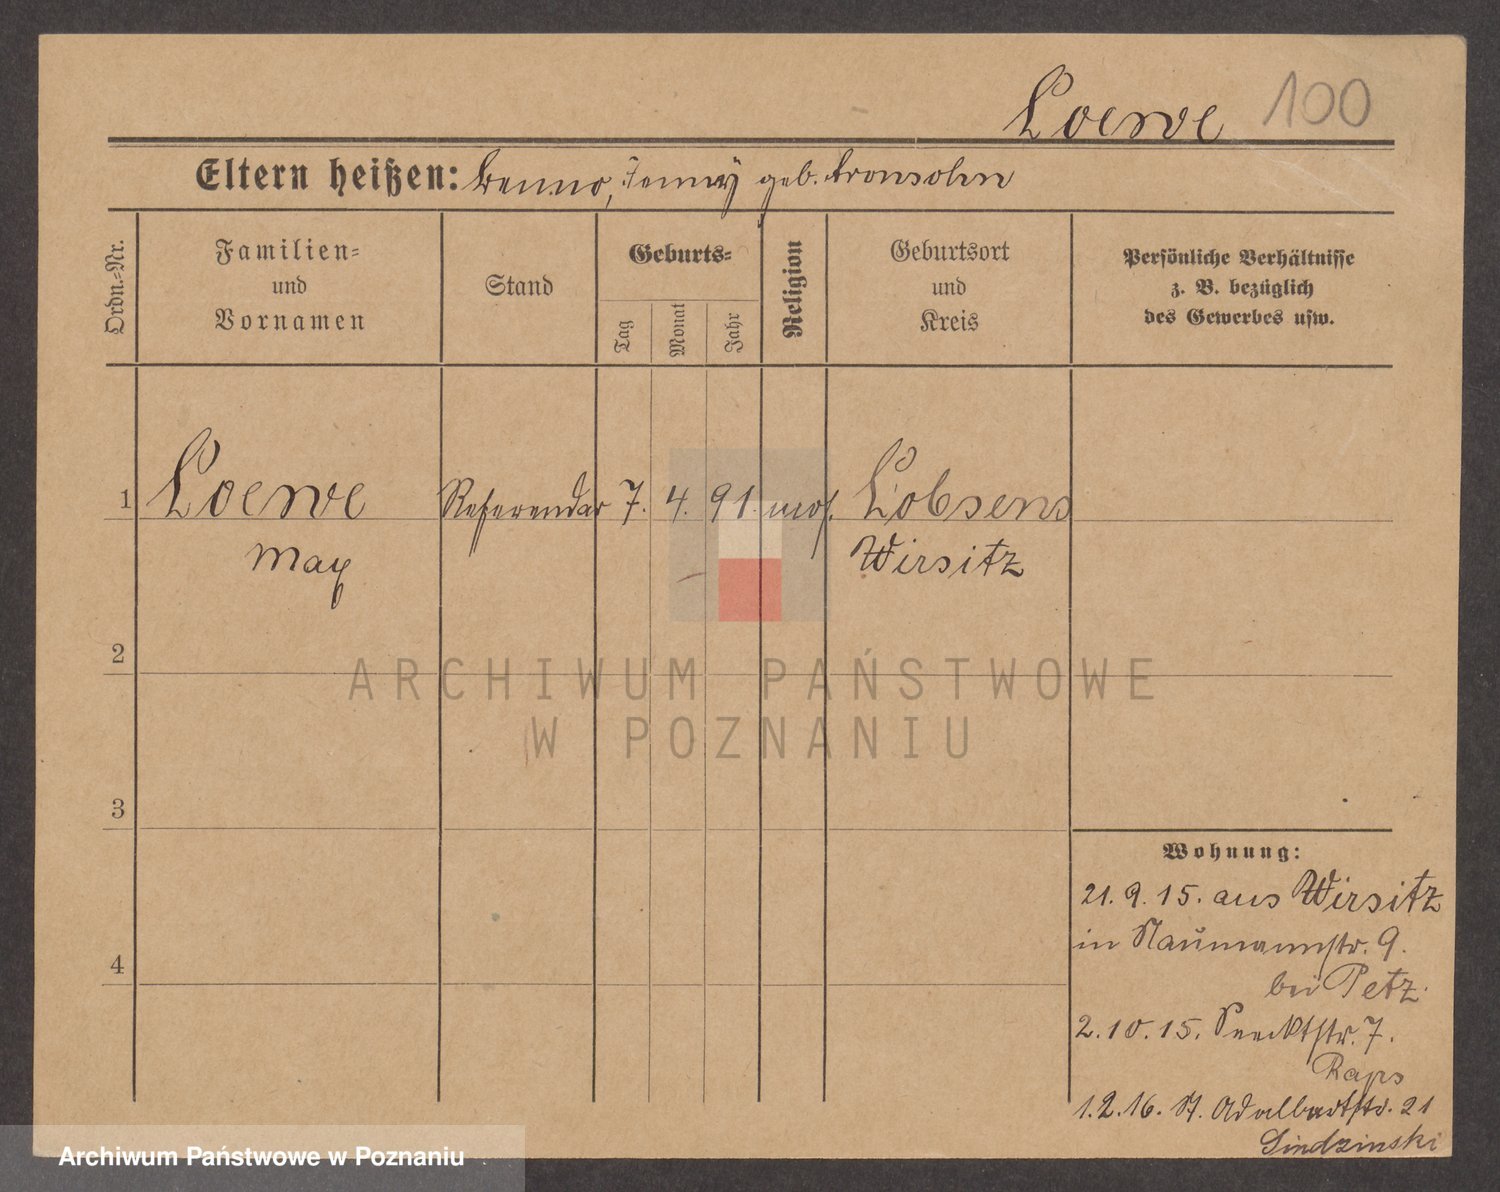 Loewe 100
Eltern heißen: Benno, Jenny geb. Aronsohn
Ordn.-Nr.
Familien-
und
Vornamen
Stand
Geburts-
Tag
Monat
Jahr
Religion
Geburtsort
und
Kreis
Persönliche Verhältnisse
z. B. bezüglich
des Gewerbes usw.
1 Loewe Referendar 7. 4. 91. mos. Lobsens
Max Wirsitz
2
ARCHIWUM PAŃSTWOWE
W POZNANIU
3
Wohnung:
21. 9. 15. aus Wirsitz
in Naumannstr. 9.
4
bei Petz.
2. 10. 15. Seecktstr. 7.
Raps
1. 2. 16. St. Adalbertstr. 21
Archiwum Państwowe w Poznaniu